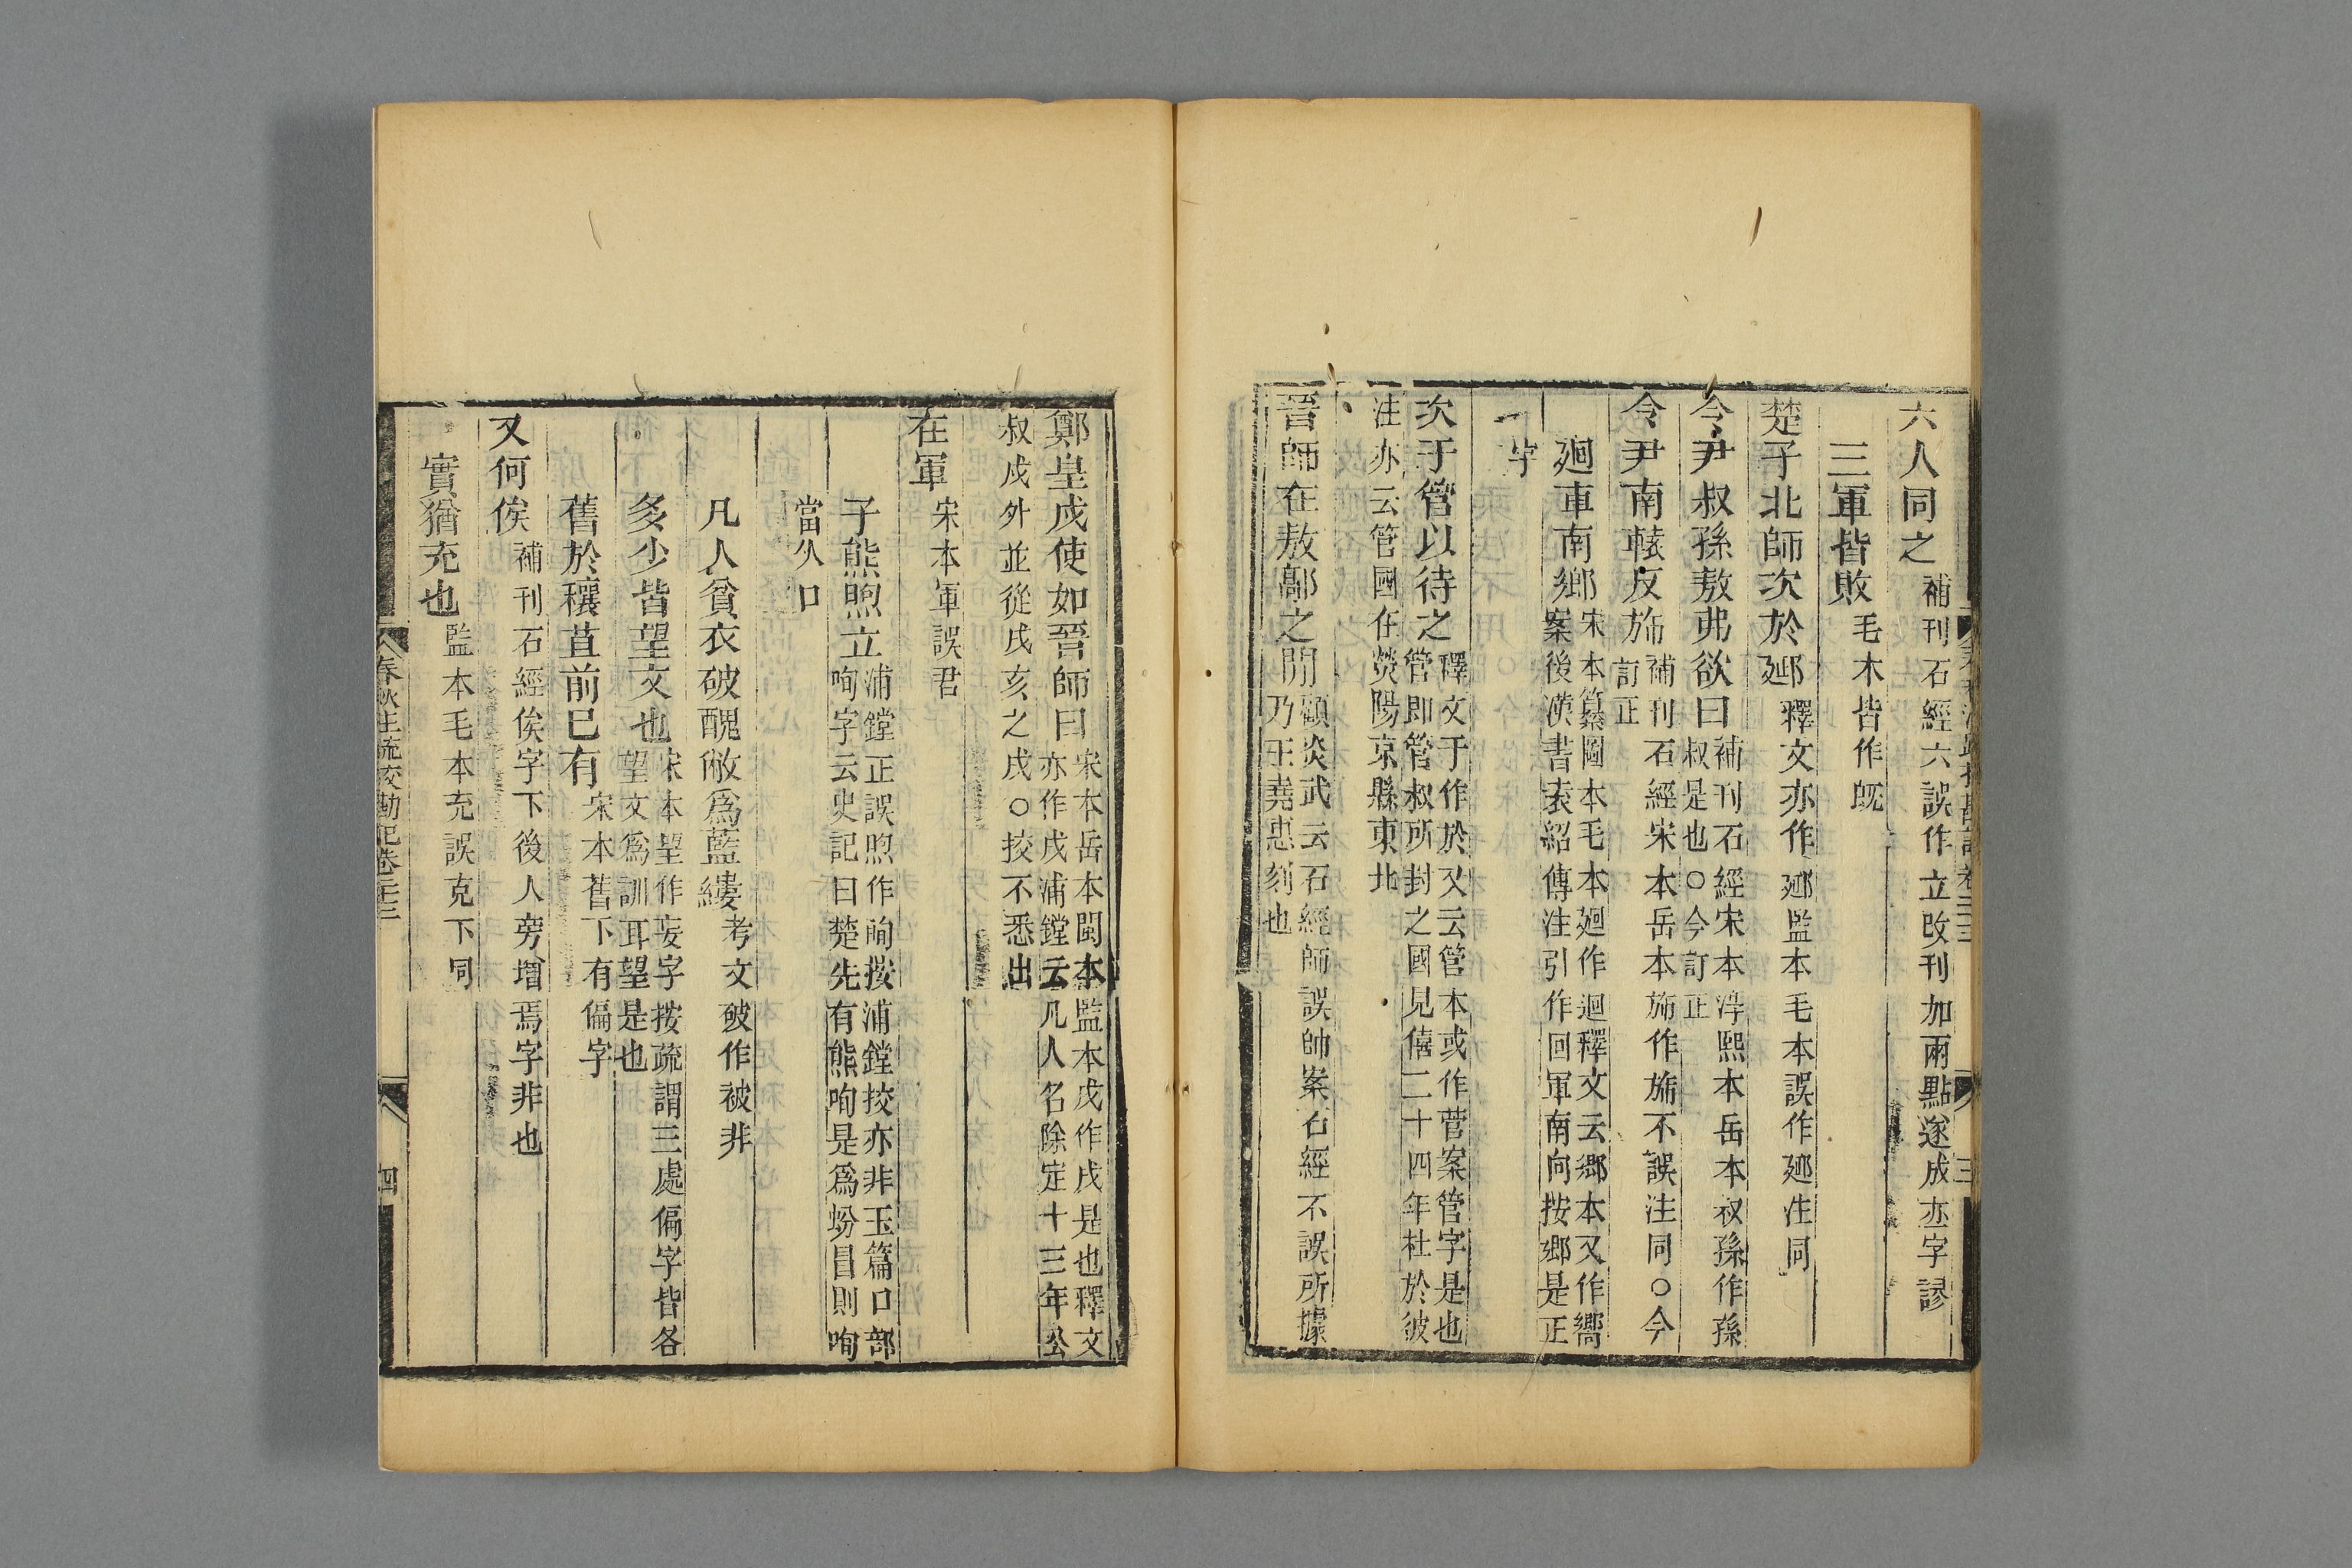 六人同之補刊石經六誤作立改刊加兩點遂成亦字謬
三軍皆敗毛本皆作旣
楚子北師次於郔釋文亦作郔監本毛本誤作郔注同
令尹叔孫敖弗欲曰補刊石經宋本淳熙本岳本叔孫作孫
叔是也○今訂正
令尹南轅反旆補刊石經宋本岳本旆作旆不誤注同○今
訂正
廻車南鄉宋本纂圖本毛本廻作迴釋文云鄉本又作嚮
案後漢書袁紹傳注引作回軍南向按鄉是正
字
次于管以待之釋文于作於又云管本或作菅案管字是也
管即管叔所封之國見僖二十四年杜於彼
注亦云管國在熒陽京縣東北
晉師在敖鄗之閒顧炎武云石經師誤帥案石經不誤所據
乃王堯惠刻也
春秋注疏挍勘記卷二十三
三
鄭皇戌使如晉師曰宋本岳本閩本監本戌作戌是也釋文
亦作戌浦鏜云凡人名除定十三年公
叔戍外並從戌亥之戌○挍不悉出
在軍宋本軍誤君
子熊煦立浦鏜正誤煦作眴按浦鏜挍亦非玉篇口部
呴字云史記曰楚先有熊呴是爲蚡冒則呴
當从口
凡人貧衣破醜敝爲藍縷考文破作被非
多少皆望文也宋本望作妄字按疏謂三處偏字皆各
望文爲訓耳望是也
舊於穰苴前已有宋本舊下有偏字
又何俟補刊石經俟字下後人旁增焉字非也
實猶充也監本毛本充誤克下同
春秋注疏挍勘記卷二十三
四